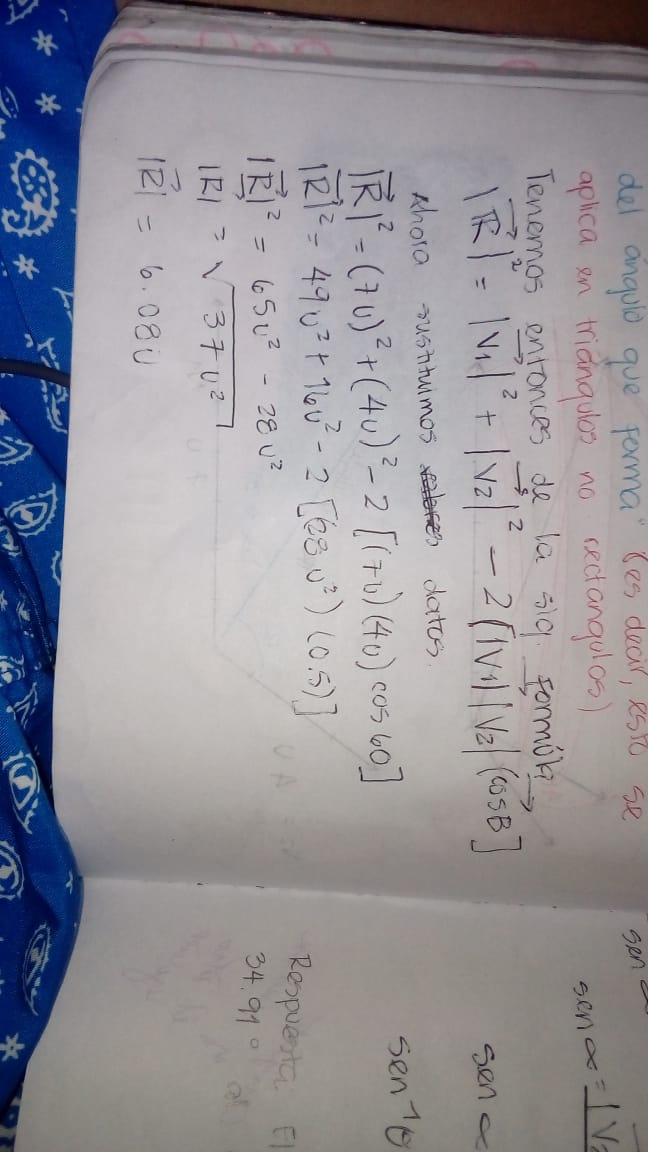 del ángulo que forma" (es decir, esto se
aplica en triángulos no rectangulos)
Tenemos entonces de la sig. formúla
|R|² = |V1|² + |V2|² - 2 [|V1| |V2| (cosB]
Ahora sustituimos datos.
|R|² = (7u)² + (4u)² - 2 [(7u) (4u) cos 60]
|R|² = 49u² + 16u² - 2 [(28u²) (0.5)]
|R|² = 65u² - 28u²
|R| = √37u²
|R| = 6.08u
sen ∝
sen ∝ = |V2
sen ∝
sen⁻¹θ
Respuesta. El
34.91°